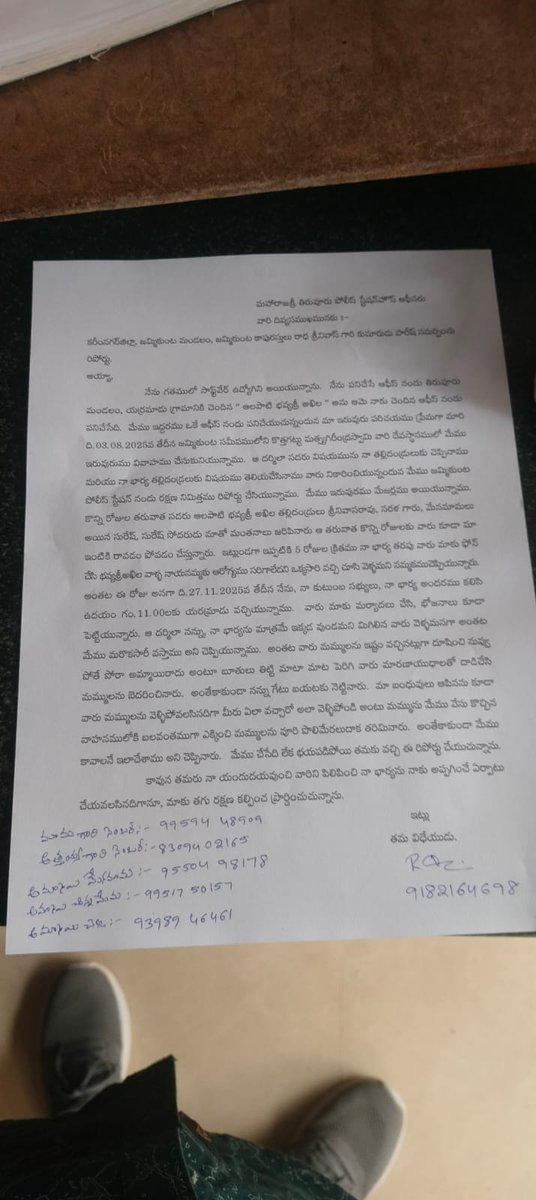 మహారాజశ్రీ తిరువూరు పోలీస్ స్టేషన్‌హౌస్ ఆఫీసరు
వారి దివ్యసముఖమునకు :-
కరీంనగర్‌జిల్లా, జమ్మికుంట మండలం, జమ్మికుంట కాపురస్తులు రాధ శ్రీనివాస్ గారి కుమారుడు హరీష్ సమర్పించు
రిపోర్టు.
అయ్యా,
నేను గతములో సాఫ్ట్‌వేర్ ఉద్యోగిని అయియున్నాను. నేను పనిచేసే ఆఫీస్ నందు తిరువూరు
మండలం, యర్రమాడు గ్రామానికి చెందిన " ఆలపాటి భవ్యశ్రీ అఖిల " అను ఆమె నాకు చెందిన ఆఫీస్ నందు
పనిచేసేది. మేము ఇద్దరము ఒకే ఆఫీస్ నందు పనిచేయుచున్నందున మా ఇరువురు పరిచయము ప్రేమగా మారి
ది.03.08.2025వ తేదీన జమ్మికుంట సమీపములోని కొత్తగట్టు మత్స్యగిరీంద్రస్వామి వారి దేవస్థానములో మేము
ఇరువురుము వివాహము చేసుకునియున్నాము. ఆ దర్మిలా సదరు విషయమును నా తల్లిదండ్రులకు చెప్పినాము
మరియు నా భార్య తల్లిదండ్రులకు విషయము తెలియచేసినాము వారు నికారించియున్నందున మేము జమ్మికుంట
పోలీస్ స్టేషన్ నందు రక్షణ నిమిత్తము రిపోర్టు చేసియున్నాము. మేము ఇరువురము మేజర్లము అయియున్నాము.
కొన్ని రోజుల తరువాత సదరు ఆలపాటి భవ్యశ్రీ అఖిల తల్లిదండ్రులు శ్రీనివాసరావు, సరళ గారు, మేనమామలు
అయిన సురేష్, సురేష్ సోదరుడు మాతో మంతనాలు జరిపినారు ఆ తరువాత కొన్ని రోజులకు వారు కూడా మా
ఇంటికి రావడం పోవడం చేస్తున్నారు. ఇట్లుండగా ఇప్పటికి 5 రోజుల క్రితము నా భార్య తరపు వారు మాకు ఫోన్
చేసి భవ్యశ్రీఅఖిల వాళ్ళ నాయనమ్మకు ఆరోగ్యము సరిగాలేదని ఒక్కసారి వచ్చి చూసి వెళ్ళమని నమ్మకముచెప్పియున్నారు.
అంతట ఈ రోజు అనగా ది.27.11.2025వ తేదీన నేను, నా కుటుంబ సభ్యులు, నా భార్య అందరము కలిసి
ఉదయం గం.11.00లకు యర్రమాడు వచ్చియున్నాము. వారు మాకు మర్యాదలు చేసి, భోజనాలు కూడా
పెట్టియున్నారు. ఆ దర్మిలా నన్ను, నా భార్యను మాత్రమే ఇక్కడ వుండమని మిగిలిన వారు వెళ్ళమనగా అంతట
మేము మరొకసారీ వస్తాము అని చెప్పియున్నాము. అంతట వారు మమ్ములను ఇష్టం వచ్చినట్లుగా దూషించి నువ్వు
పోతే పోరా అమ్మాయిరాదు అంటూ బూతులు తిట్టి మాటా మాట పెరిగి వారు మారణాయుధాలతో దాడిచేసి
మమ్ములను బెదరించినారు. అంతేకాకుండా నన్ను గేటు బయటకు నెట్టినారు. మా బంధువులు ఆపినను కూడా
వారు మమ్ములను వెళ్ళిపోవలసినదిగా మీరు ఏలా వచ్చారో అలా వెళ్ళిపోండి అంటు మమ్మును మేము వేసు కొచ్చిన
వాహనములోకి బలవంతముగా ఎక్కించి మమ్ములను వూరి పొలిమేరలుదాక తరిమినారు. అంతేకాకుండా మేము
కావాలనే ఇలాచేశాము అని చెప్పినారు. మేము చేసేది లేక భయపడిపోయి తమకు వచ్చి ఈ రిపోర్టు చేయుచున్నాను.
కావున తమరు నా యందుదయవుంచి వారిని పిలిపించి నా భార్యను నాకు అప్పగించే ఏర్పాటు
చేయవలసినదిగానూ, మాకు తగు రక్షణ కల్పించ ప్రార్థించుచున్నాను.
ఇట్లు
తమ విధేయుడు.
మామ గారి నెంబర్:- 99594 48909
అత్తయ్య గారి నెంబర్:- 8309402165
అమ్మాయి మేనమామ :- 95504 98178
అమ్మాయి చిన్న మేనమామ :- 99517 50157
అమ్మాయి :- 93989 46461
9182164698